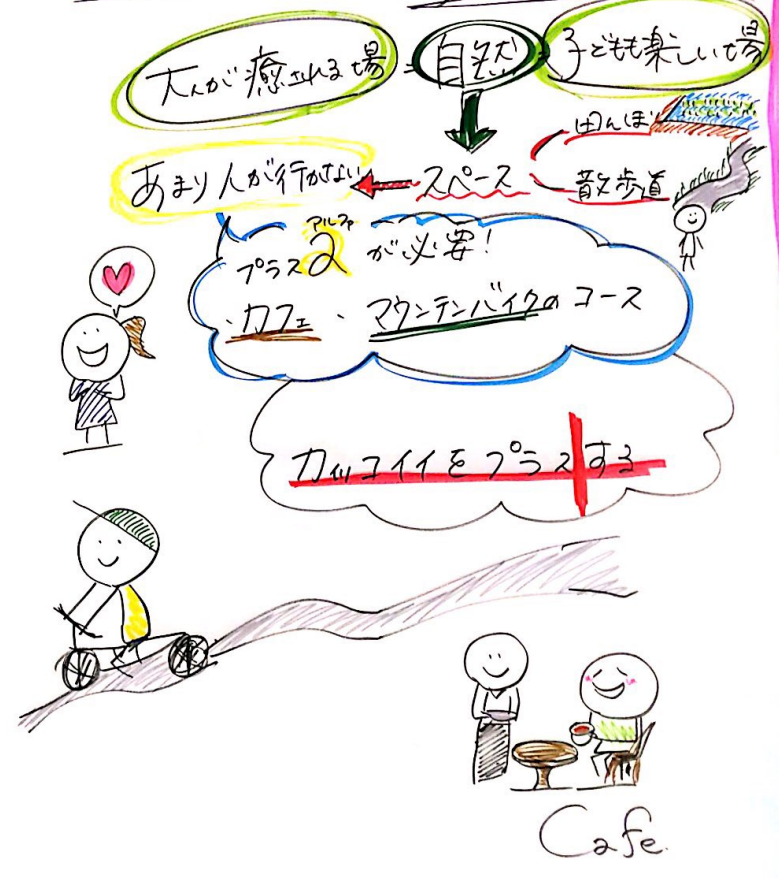 大人が癒される場
自然
子どもも楽しい場
田んぼ
あまり人が行かない
スペース
散歩道
アルファ
プラスαが必要!
・カフェ ・マウンテンバイクのコース
カッコイイをプラスする
Cafe